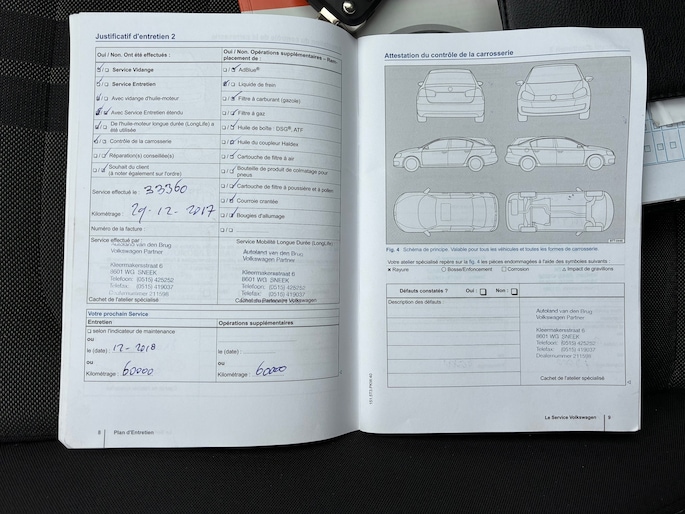 Justificatif d'entretien 2
Oui / Non. Ont été effectués :
Service Vidange
Service Entretien
Avec vidange d'huile-moteur
Avec Service Entretien étendu
De l'huile-moteur longue durée (LongLife) a
été utilisée
Contrôle de la carrosserie
Réparation(s) conseillée(s)
Souhait du client
(à noter également sur l'ordre)
Service effectué le : 33360
Kilométrage : 29-12-2017
Numéro de la facture :
Oui / Non. Opérations supplémentaires –
placement de :
AdBlue®
Liquide de frein
Filtre à carburant (gazole)
Filtre à gaz
Huile de boîte : DSG®, ATF
Huile du coupleur Haldex
Cartouche de filtre à air
Bouteille de produit de colmatage pour
pneus
Cartouche de filtre à poussière et à pollen
Courroie crantée
Bougies d'allumage
Service effectué par :
Autoland van den Brug
Volkswagen Partner
Kleermakersstraat 6
8601 WG SNEEK
Telefoon: (0515) 425252
Telefax: (0515) 419037
Dealernummer 211598
Cachet de l'atelier spécialisé
Service Mobilité Longue Durée (LongLife)
Autoland van den Brug
Volkswagen Partner
Kleermakersstraat 6
8601 WG SNEEK
Telefoon: (0515) 425252
Telefax: (0515) 419037
Volkswagen
Votre prochain Service
Entretien
selon l'indicateur de maintenance
ou
le (date) : 12-2018
ou
Kilométrage : 60000
Opérations supplémentaires
le (date) :
ou
Kilométrage : 60000
8 Plan d'Entretien
Attestation du contrôle de la carrosserie
Fig. 4 Schéma de principe. Valable pour tous les véhicules et toutes les formes de carrosserie.
Votre atelier spécialisé repère sur la fig. 4 les pièces endommagées à l'aide des symboles suivants :
x Rayure O Bosse/Enfoncement □ Corrosion △ Impact de gravillons
Défauts constatés ? Oui : Non :
Description des défauts :
Autoland van den Brug
Volkswagen Partner
Kleermakersstraat 6
8601 WG SNEEK
Telefoon: (0515) 425252
Telefax: (0515) 419037
Dealernummer 211598
Cachet de l'atelier spécialisé
Le Service Volkswagen 9